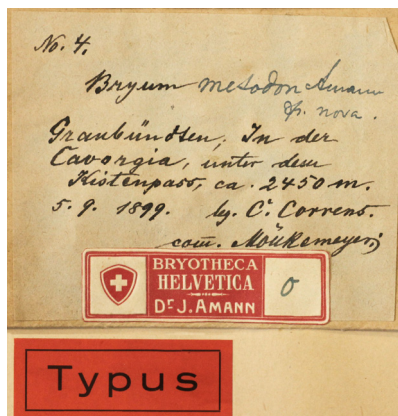 No. 4.
Bryum mesodon Amann
sp. nova.
Graubündten, In der
Cavorgia, unter dem
Kistenpass, ca. 2450 m.
5. 9. 1899. lg. C. Correns.
com. Mönkemeyer;
BRYOTHECA
HELVETICA
Dr J. AMANN
o
Typus